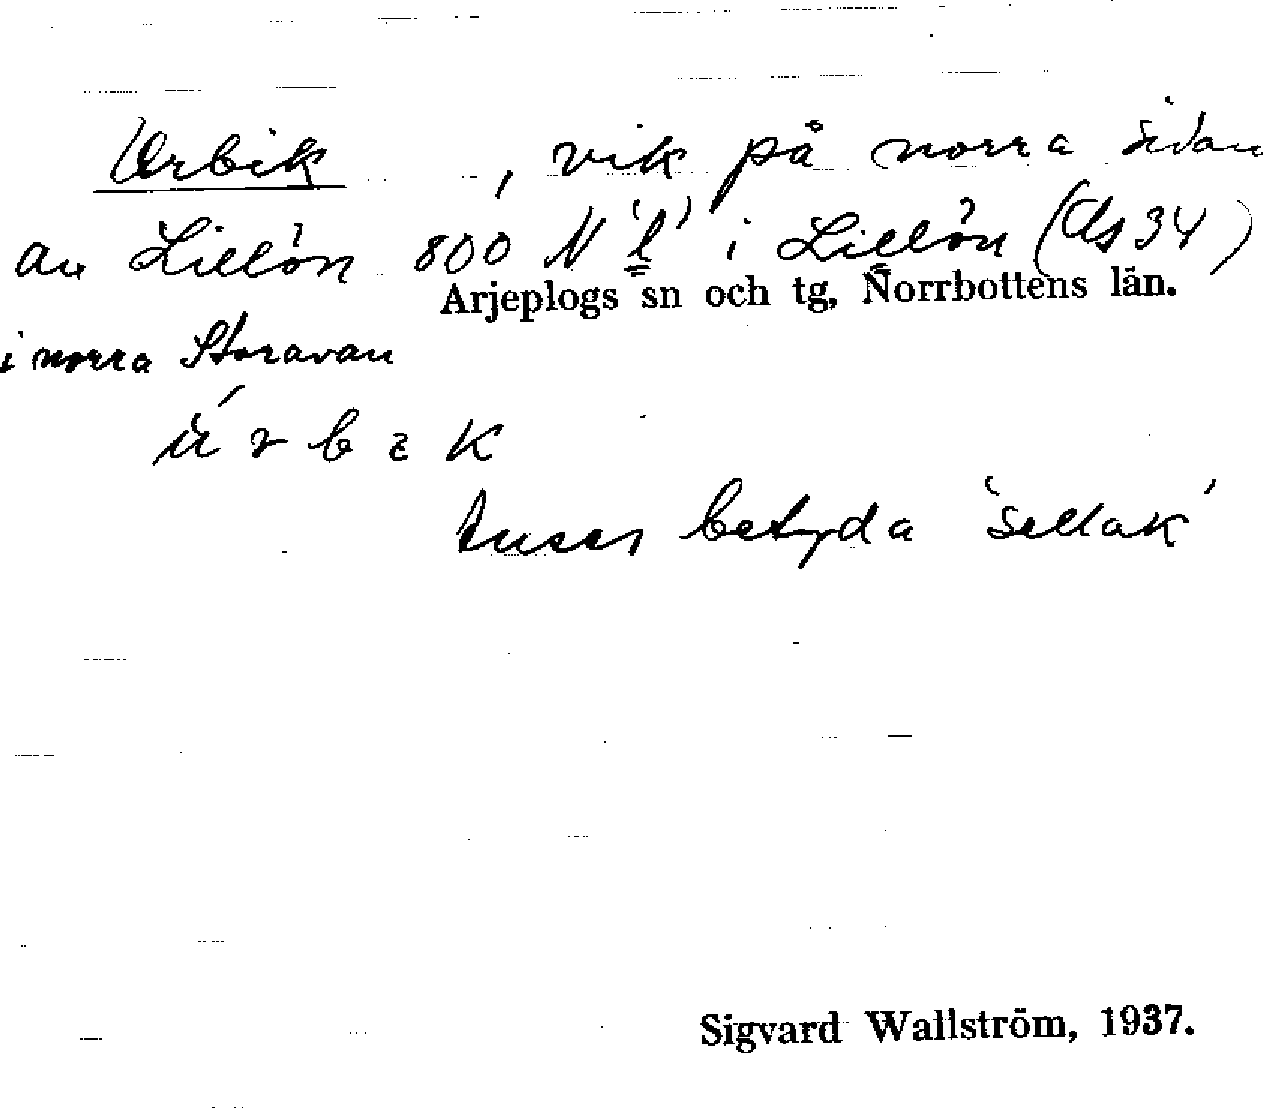 Urbik , vik på norra sidan
av Lillön 800 N 'l' i Lillön (As 34)
Arjeplogs sn och tg, Norrbottens län.
i norra Storavan
betyda 'sellak'
Sigvard Wallström, 1937.